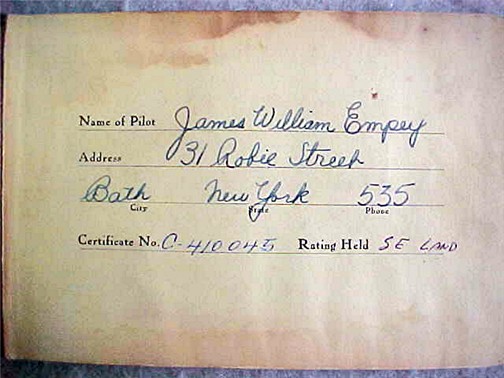 Name of Pilot James William Empey
Address 31 Robie Street
Bath New York 535
City State Phone
Certificate No. C-410045 Rating Held SE LAND